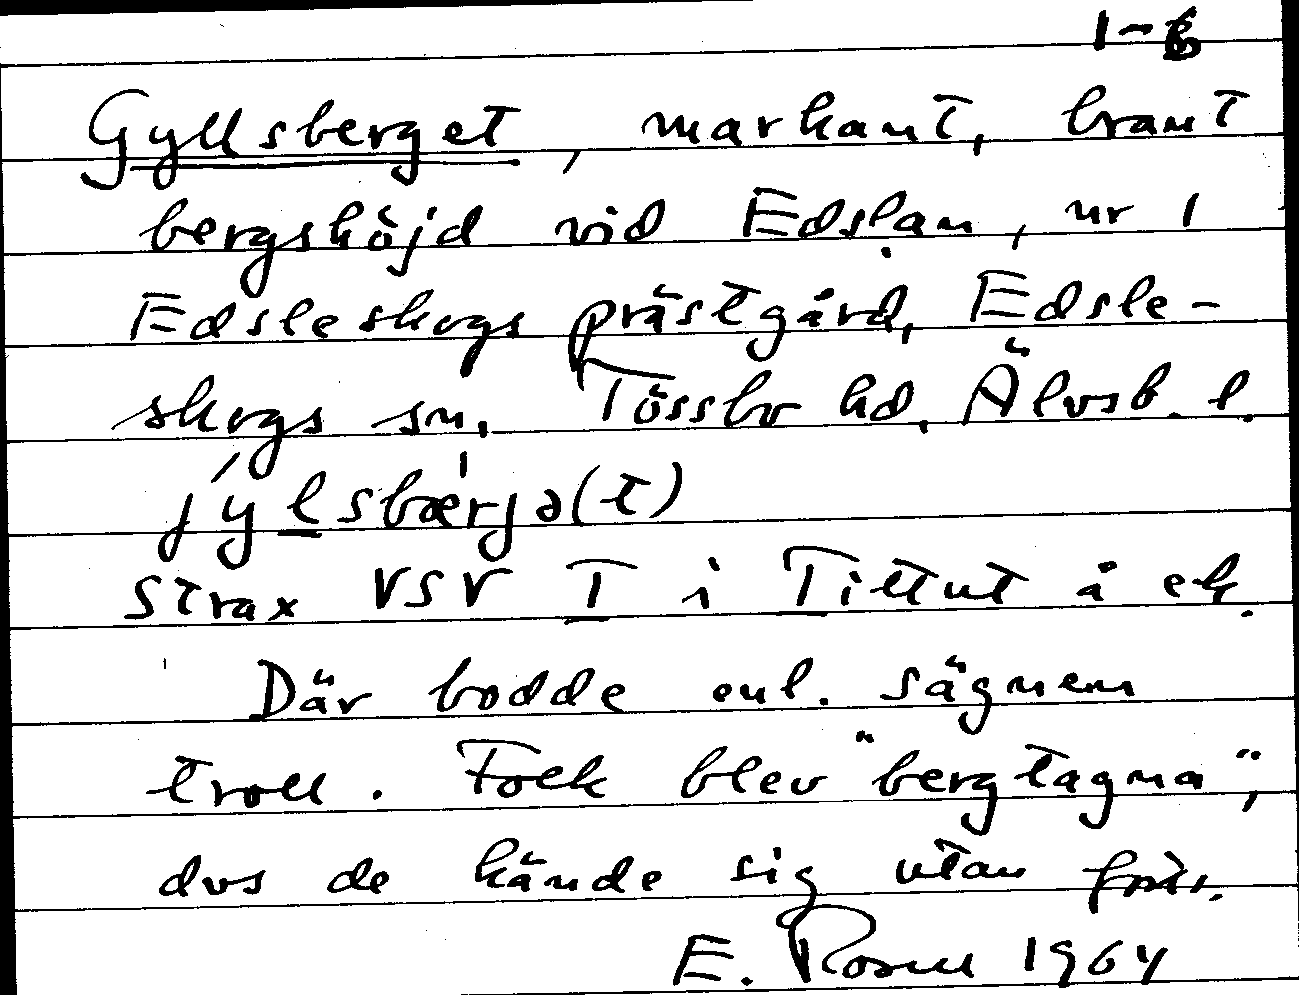 1-6
Gyllsberget, markant, brant
bergshöjd vid Edslan, nr 1
Edsleskogs prästgård, Edsle-
skogs sn. Tössbo hd, Älvsb. l.
jýlsbærjə(t)
Strax VSV T i Tittut å ek.
Där bodde enl. sägnen
troll. Folk blev "bergtagna",
dvs de kände sig utan
E. Rosell 1964